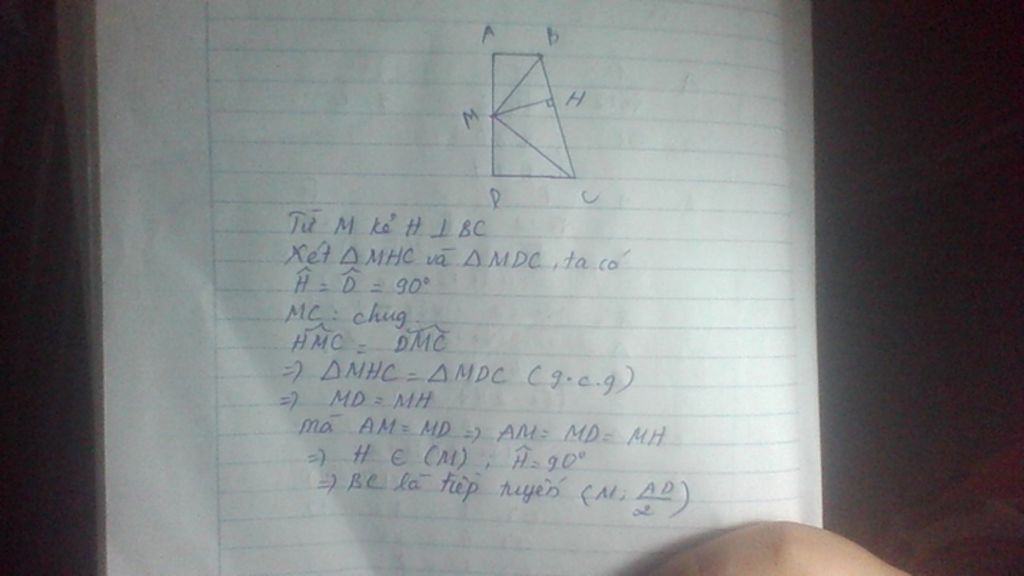 A B
H
M
D C
Từ M kẻ H ⊥ BC
Xét ΔMHC và ΔMDC, ta có
Ĥ = D̂ = 90°
MC: chug
HMC = DMC
=> ΔMHC = ΔMDC (g.c.g)
=> MD = MH
mà AM = MD => AM = MD = MH
=> H ∈ (M); Ĥ = 90°
=> BC là tiếp tuyến (M; AD/2)